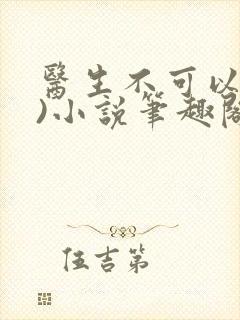 醫生不可以
)小說筆趣閣
伍吉第